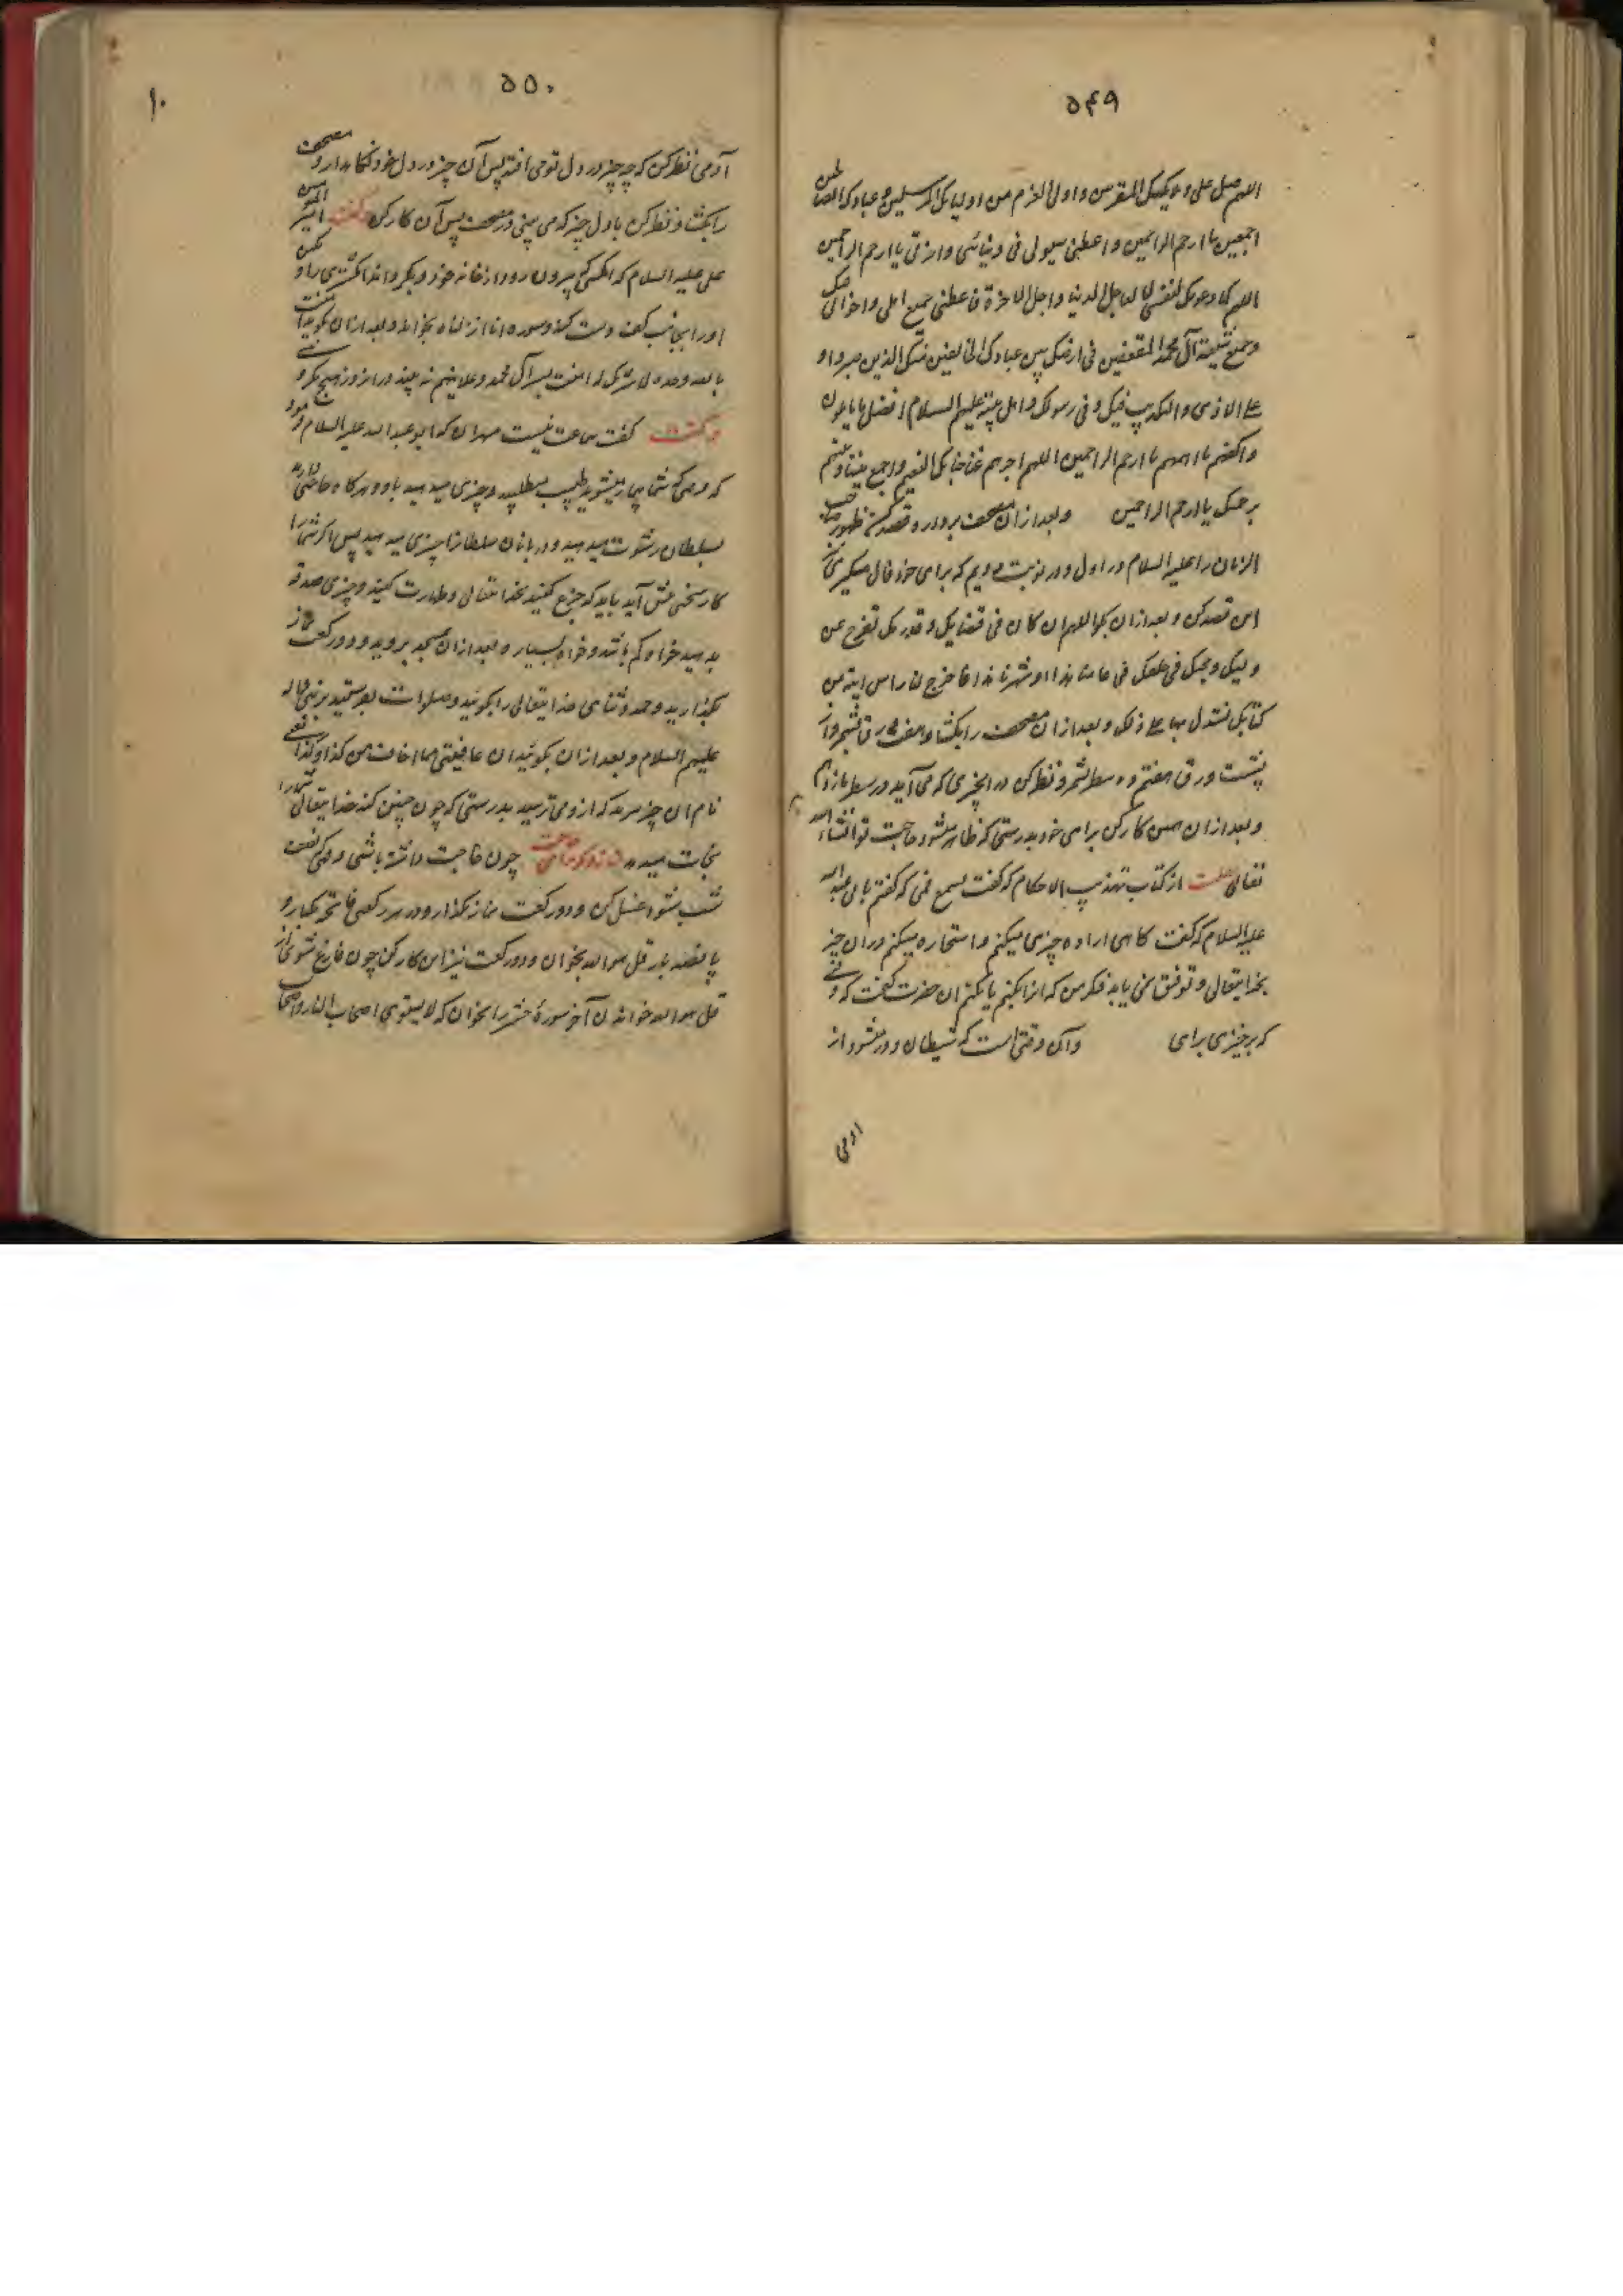 ۵۴۹
اللهم صل علی ملایکتک المقربین و اولی العزم من اولیایک المرسلین و عبادک الصالحین
اجمعین یا ارحم الراحمین و اعطنی سولی فی دنیائی و اخرتی یا ارحم الراحمین
اللهم کما دعوتک لنفسی لعاجل الدنیا و اجل الاخرة فاعطنی جمیع اهلی و اخوانی فیک
و جمیع شیعة آل محمد المستضعفین فی ارضک بین عبادک الخایفین منک الذین صبروا
علی الاذی و التکذیب فیک و فی رسولک و اهل بیته علیهم السلام افضل ما یاملون
و اکفهم ما اهمهم یا ارحم الراحمین اللهم اجزهم عنا جنانک النعیم و اجمع بیننا و بینهم
برحمتک یا ارحم الراحمین و بعد ازان مصحف بردار و قصد کن ظهور صاحب
الزمان را علیه السلام در اول و در نوبت دویم که برای خود فال میگیری
این قصد کن و بعد ازان بگو اللهم ان کان فی قضایک و قدرک تفرج عن
ولیک و حجتک فی خلقک فی عامنا هذا او شهرنا هذا فاخرج لنا راس ایة من
کتابک نستدل بها علی ذلک و بعد ازان مصحف را بکشا و هفت ورق بشمر و از
پشت ورق هفتم ده سطر بشمر و نظر کن در انچیزی که می آید در سطر یازدهم
و بعد ازان همین کار کن برای خود بدرستی که ظاهر میشود حاجت تو انشاء الله
تعالی از کتاب تهذیب الاحکام که گفت یسع قمی که گفتم بابی عبد الله
علیه السلام که گفت کاهی اراده چیزی میکنم و استخاره میکنم دران چیز
بخدایتعالی و توفیق نمی یابد فکر من که ازا بکنم یا نکنم ان حضرت گفت که وقتی
که برخیزی برای وآن وقتی است که شیطان دور میشود از
ادمی
۵۵۰
۱۰
آدمی نظر کن که چه چیز در دل تو می افتد پس آن چیز در دل خود نگاهدار و مصحف
را بکشا و نظر کن باول چیز که می بینی در مصحف پس آن کار کن گفت امیر المومنین
علی علیه السلام که انکسی که بیرون رود از خانه خود و بگرداند انکشتری را و نگین
او را بجانب کف دست کند و سوره انا انزلناه بخواند و بعد ازان بگوید امنت
بالله وحده لا شریک له امنت بسر آل محمد و علانیتهم نه بیند در انروز هیچ مکروهی
گفت که فرمود ابو عبد الله علیه السلام
که وقتی که شما بیمار میشوید طبیب میطلبید و چیزی میدهید باو و هرگاه حاجتی دارید
بسلطان رشوت میدهید و دربانان سلطانرا چیزی میدهید پس اگر شما را
کار سختی پیش آید باید که جزع کنید بخدایتعالی و طهارت کنید و چیزی صدقه
بدهید خواه کم باشد و خواه بسیار و بعد ازان بمسجد بروید و دو رکعت نماز
بگذارید و حمد و ثنای خدایتعالی را بگوئید و صلوات بفرستید بر نبی و اله
علیهم السلام و بعد ازان بگوئید ان عافیتنی مما اخاف من کذا و کذا یعنی
نام ان چیز برید که ازو می ترسید بدرستی که چون چنین کند خدایتعالی شما را
نجات میدهد نماز دیگر برای حاجت چون حاجت داشته باشی در وقتی که نصف
شب شود غسل کن و دو رکعت نماز بگذار و در هر رکعتی فاتحه یکبار و
پانصد بار قل هو الله بخوان و دو رکعت نیز این کار کن چون فارغ شوی از
قل هو الله خواندن آخر سورۀ حشر را بخوان که لا یستوی اصحاب النار و اصحاب